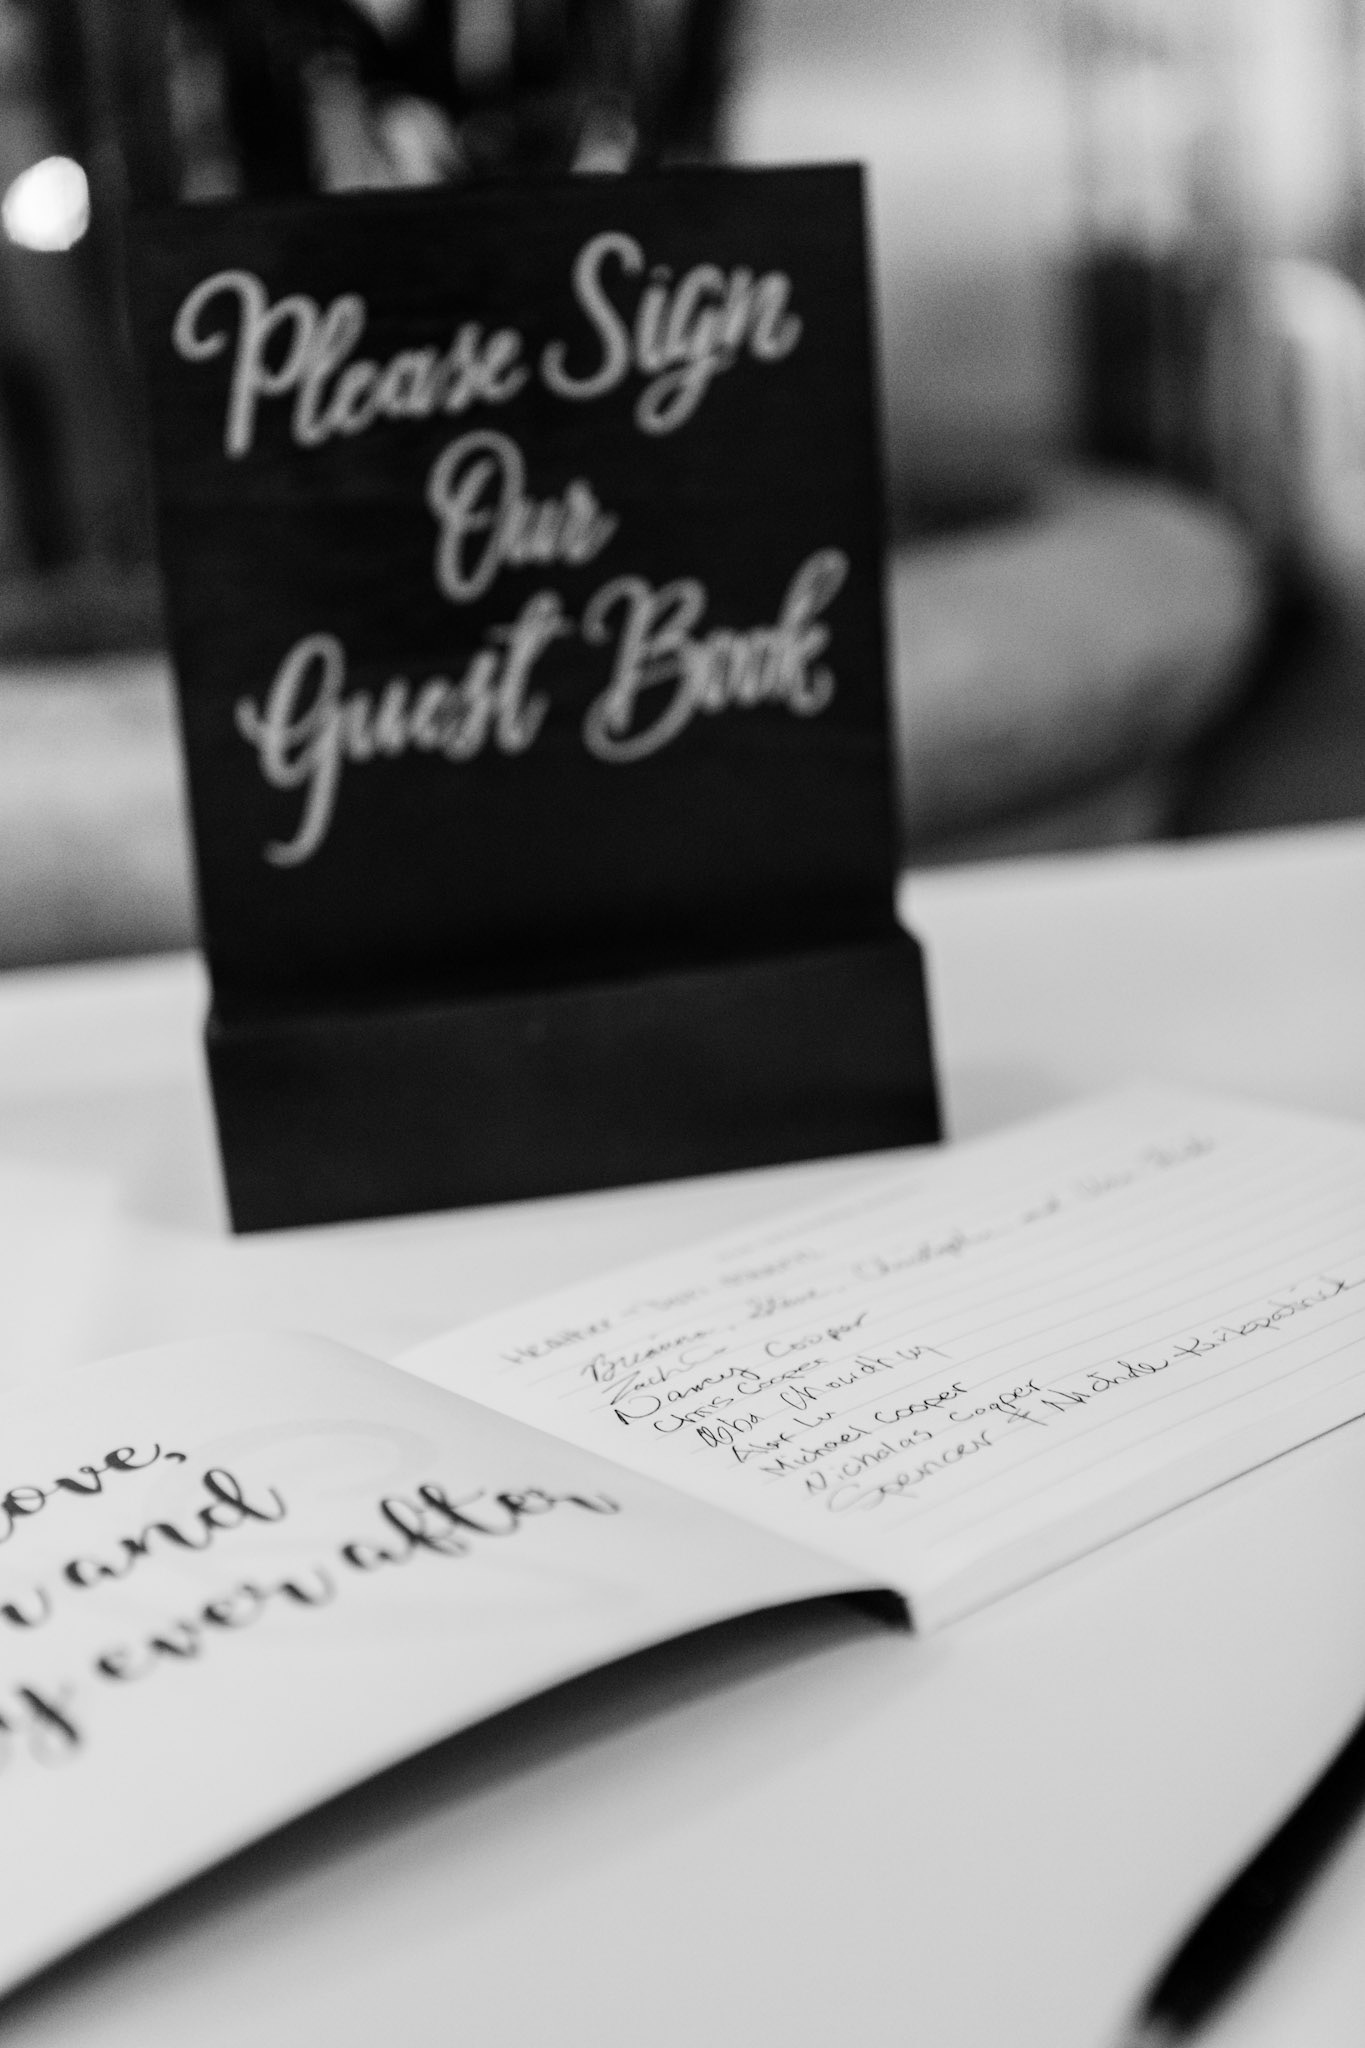 Please Sign
Our
Guest Book
and
ever after
Heather
Brianna, Steve, Christopher and
Zach C
Nancy Cooper
Chris Cooper
Alex Lu
Michael Cooper
Nicholas Cooper
Spencer & Nichole Kirkpatrick